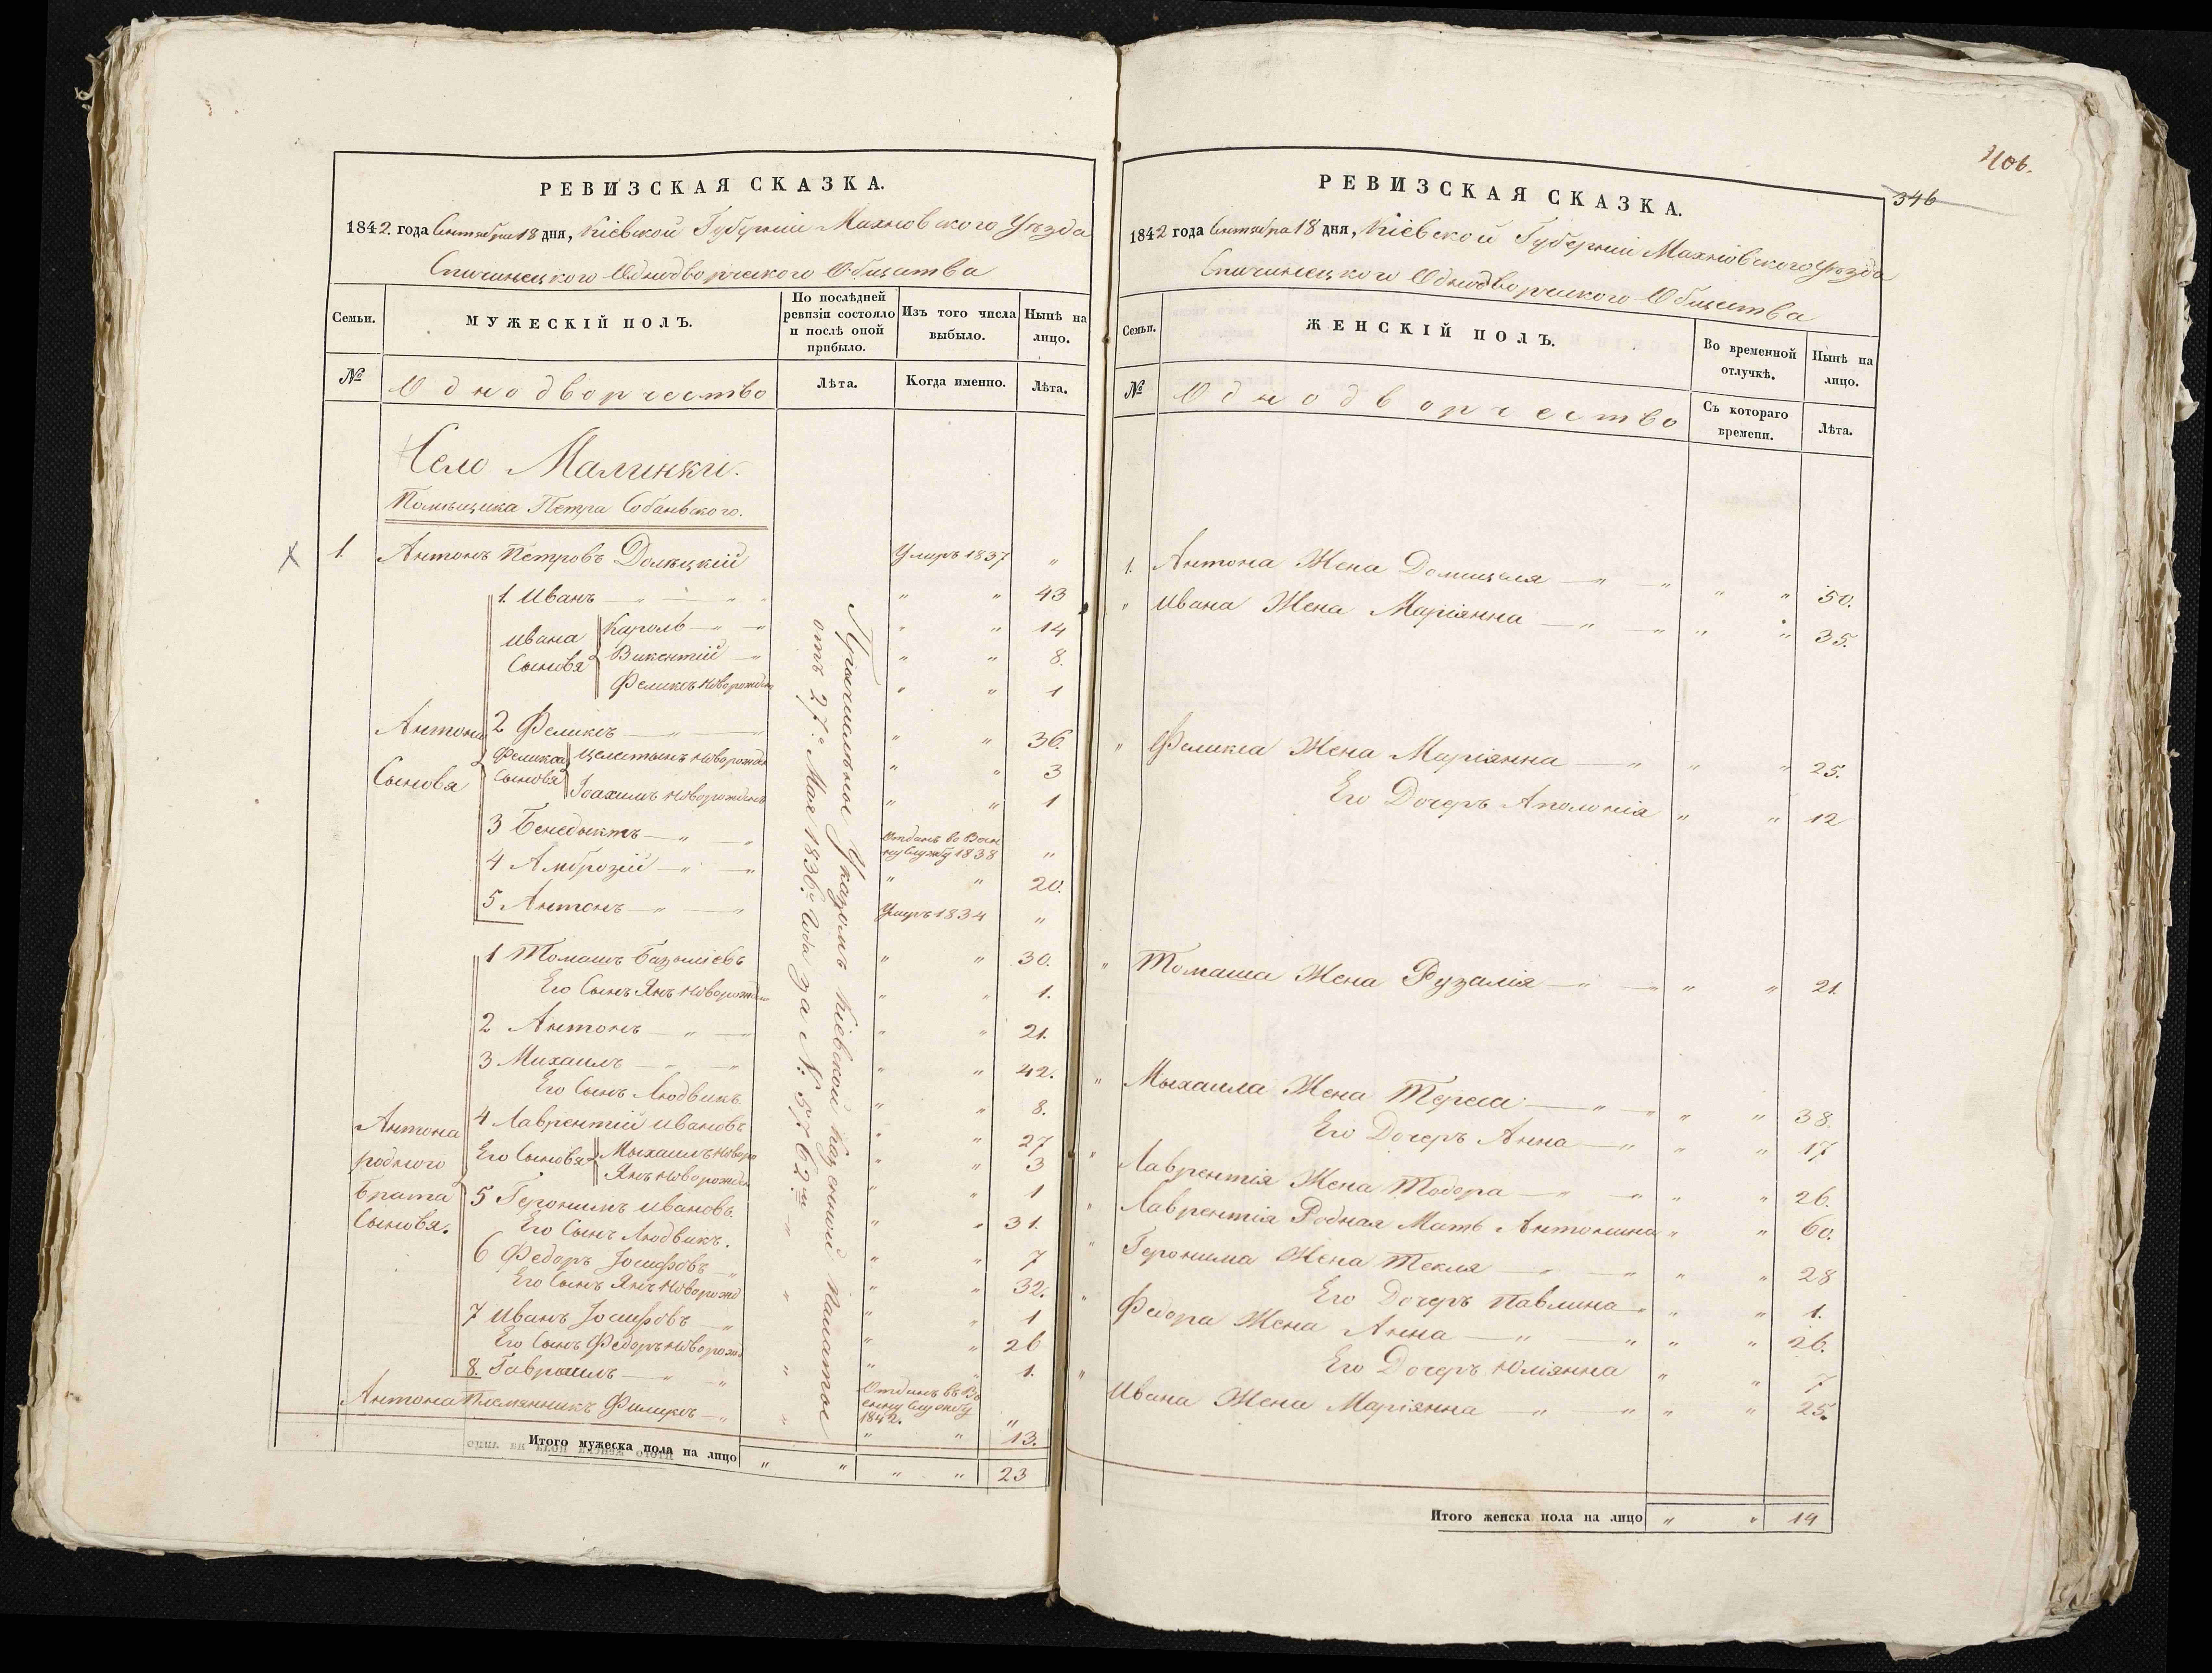 РЕВИЗСКАЯ СКАЗКА.
1842. года Сентября 18 дня, Кіевской Губерніи Махновского Уѣзда
Спичинецкого Однодворческого Общества
Семьи.
МУЖЕСКІЙ ПОЛЪ.
По послѣдней ревизіи состояло и послѣ оной прибыло.
Изъ того числа выбыло.
Нынѣ на лицо.
№
Однодворчество
Лѣта.
Когда именно.
Лѣта.
Село Малинки.
Помѣщика Петра Собанвского.
1. Антонъ Петровъ Долецкій Умиръ 1837 "
1. Иванъ — " — " " " 43
Ивана Сыновя
Кароль — " — " " " 14
Викентій — " " " 8.
Феликсъ Новорожден " " 1
Антона Сыновя
2 Феликсъ — " — " " " 36.
Феликса Сыновя
Целестынъ Новорожден " " 3
Іоахимъ Новорожденъ " " 1
3 Бенедыктъ — " — " Отданъ во Воен
ну Службу 1838 "
4 Амброзій — " — " " " 20.
5 Антонъ — " — " Умиръ 1834 "
Антона родного брата Сыновя.
1 Томашъ Базыліевъ " " 30.
Его Сынъ Янъ Новорожден " " 1.
2 Антонъ — " — " " 21.
3 Михаилъ — " — " " " 42.
Его Сынъ Людвикъ " " 8.
4 Лаврентій Ивановъ " " 27
Его Сыновя
Мыхаилъ Новоро " " 3
Янъ Новорожден " " 1
5 Геронимъ Ивановъ. " " 31.
Его Сынъ Людвикъ. " " 7
6 Федоръ Іосифовъ — " " " 32.
Его Сынъ Янъ Новорожд " " 1
7 Иванъ Іосифовъ — " " " 26
Его Сынъ Федоръ Новорожд " " 1.
8. Гавраилъ — " — " Отданъ въ Во
енну Службу
1842. "
Антона Племянникъ Филикъ — " " " 13.
Первоначальное Указомъ Кіевской Казенной Палатое
отъ 27.го Мая 1836.го Года за №: 5762.мъ "
Итого мужеска пола на лицо " " " " 23
406.
346
РЕВИЗСКАЯ СКАЗКА.
1842 года Сентября 18 дня, Кіевской Губерніи Махновского Уѣзда
Спичинецкого Однодворческого Общества
Семьи.
ЖЕНСКІЙ ПОЛЪ.
Во временной отлучкѣ.
Нынѣ на лицо.
№
Однодворчество
Съ котораго времени.
Лѣта.
1. Антона Жена Домицеля — " — " " " 50.
" Ивана Жена Маріянна — " — " " " 35.
" Феликса Жена Маріянна — " " " 25.
Его Дочеръ Аполонія " " 12
" Томаша Жена Рузалія — " — " " " 21.
" Мыхаила Жена Тереса — " — " " " 38.
Его Дочеръ Анна — " " " 17
" Лаврентія Жена Тодора — " — " " " 26.
" Лаврентія Родная Мать Антонина " " 60.
" Геронима Жена Текля — " — " " " 28
Его Дочеръ Павлина " " 1.
" Федора Жена Анна — " — " " " 26.
Его Дочеръ Юліянна " " 7
" Ивана Жена Маріянна — " — " " " 25.
Итого женска пола на лицо " " 14